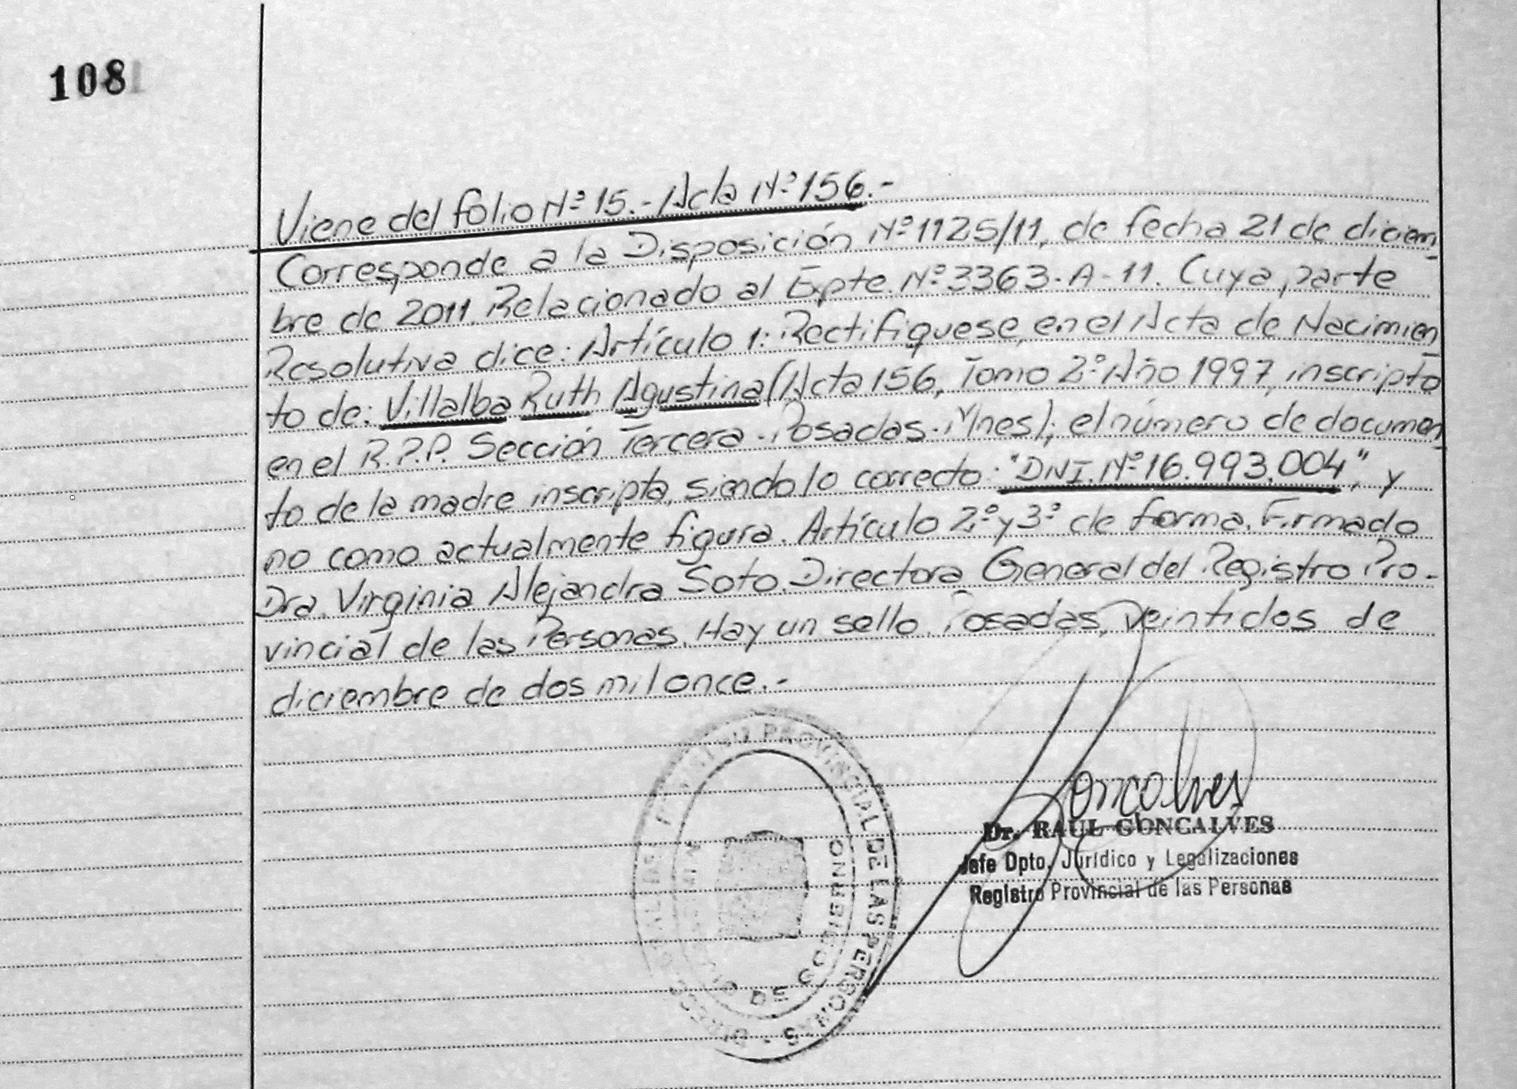 108
Viene del folio Nº 15.- Acta Nº 156.-
Corresponde a la Disposición Nº 1125/11, de fecha 21 de diciem
bre de 2011. Relacionado al Expte. Nº 3363-A-11. Cuya parte
Resolutiva dice: Artículo 1: Rectifíquese, en el Acta de Nacimien
to de: Villalba Ruth Agustina (Acta 156, Tomo 2º Año 1997, inscripto
en el R.P.P. Sección Tercera - Posadas - Mnes); el número de documen
to de la madre inscripta, siendo lo correcto: "DNI. Nº 16.993.004", y
no como actualmente figura. Artículo 2º y 3º de forma. Firmado
Dra. Virginia Alejandra Soto. Directora General del Registro Pro-
vincial de las Personas. Hay un sello. Posadas, veintidos de
diciembre de dos mil once.-
PROVINCIAL DE LAS PERSONAS
DE GOBIERNO
Goncalves
Dr. RAUL GONCALVES
Jefe Dpto. Jurídico y Legalizaciones
Registro Provincial de las Personas